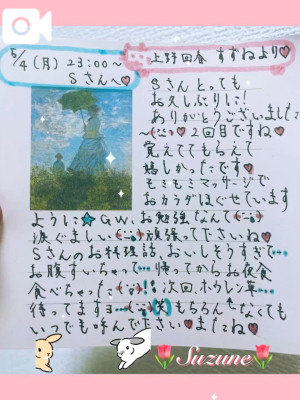 5/4(月) 23:00〜
Sさんへ♡
上野回春 すずねより♡
Sさんとっても
お久しぶりに!
ありがとうございました
〜♡2回目ですね♡
覚えててもらえて
嬉しかったです♡
モミモミマッサージで
おカラダほぐせています
ように★GW、お勉強なんて
涙ぐましい 頑張って下さいね♡
Sさんのお料理話、おいしそうすぎて…
お腹すいちゃって…帰ってからお夜食
食べちゃった!!次回、ホウレン草…
待ってますヨ…(笑)もちろん↑なくても
いつでも呼んで下さい♡またね♡
Suzune